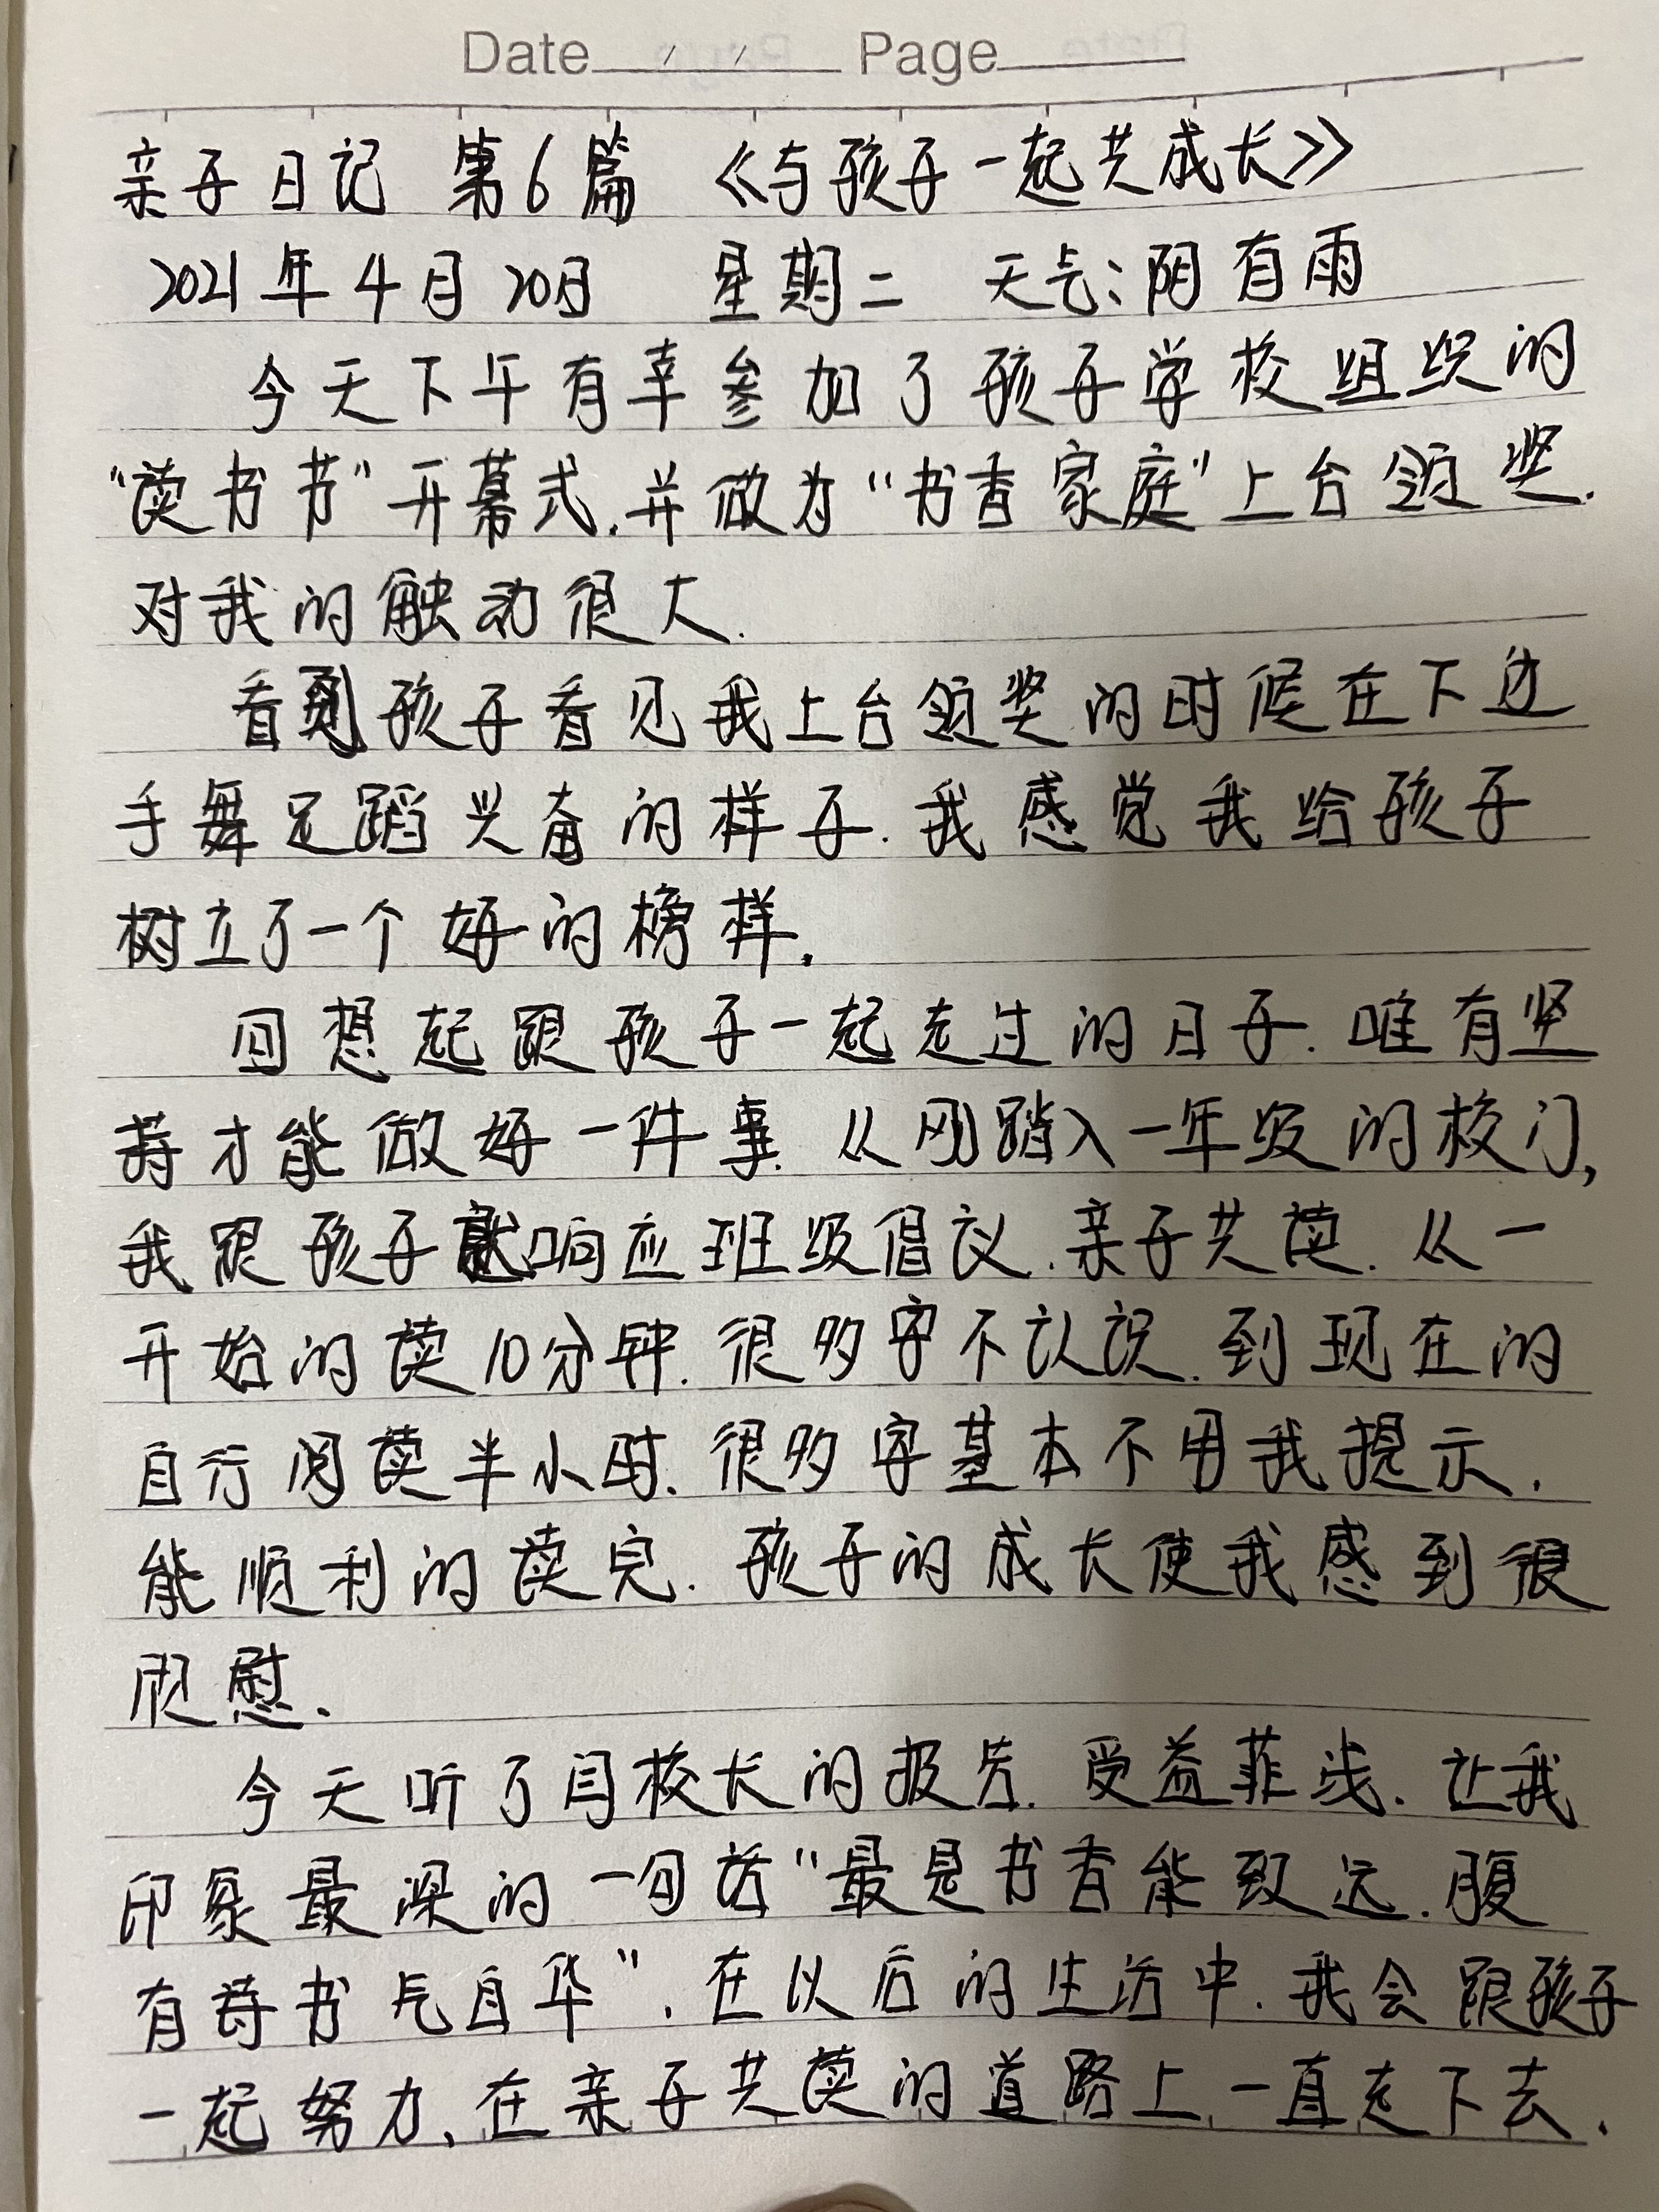 Date / / Page
亲子日记 第6篇 《与孩子一起共成长》
2021年4月20日 星期二 天气:阴有雨
今天下午有幸参加了孩子学校组织的
“读书节”开幕式.并做为“书香家庭”上台领奖.
对我的触动很大.
看到孩子看见我上台领奖的时候在下边
手舞足蹈兴奋的样子.我感觉我给孩子
树立了一个好的榜样.
回想起跟孩子一起走过的日子.唯有坚
持才能做好一件事.从刚踏入一年级的校门,
我跟孩子就响应班级倡议.亲子共读.从一
开始的读10分钟.很多字不认识.到现在的
自行阅读半小时.很多字基本不用我提示.
能顺利的读完.孩子的成长使我感到很
欣慰.
今天听了闫校长的报告.受益菲浅.让我
印象最深的一句话“最是书香能致远.腹
有诗书气自华”.在以后的生活中.我会跟孩子
一起努力、在亲子共读的道路上一直走下去.